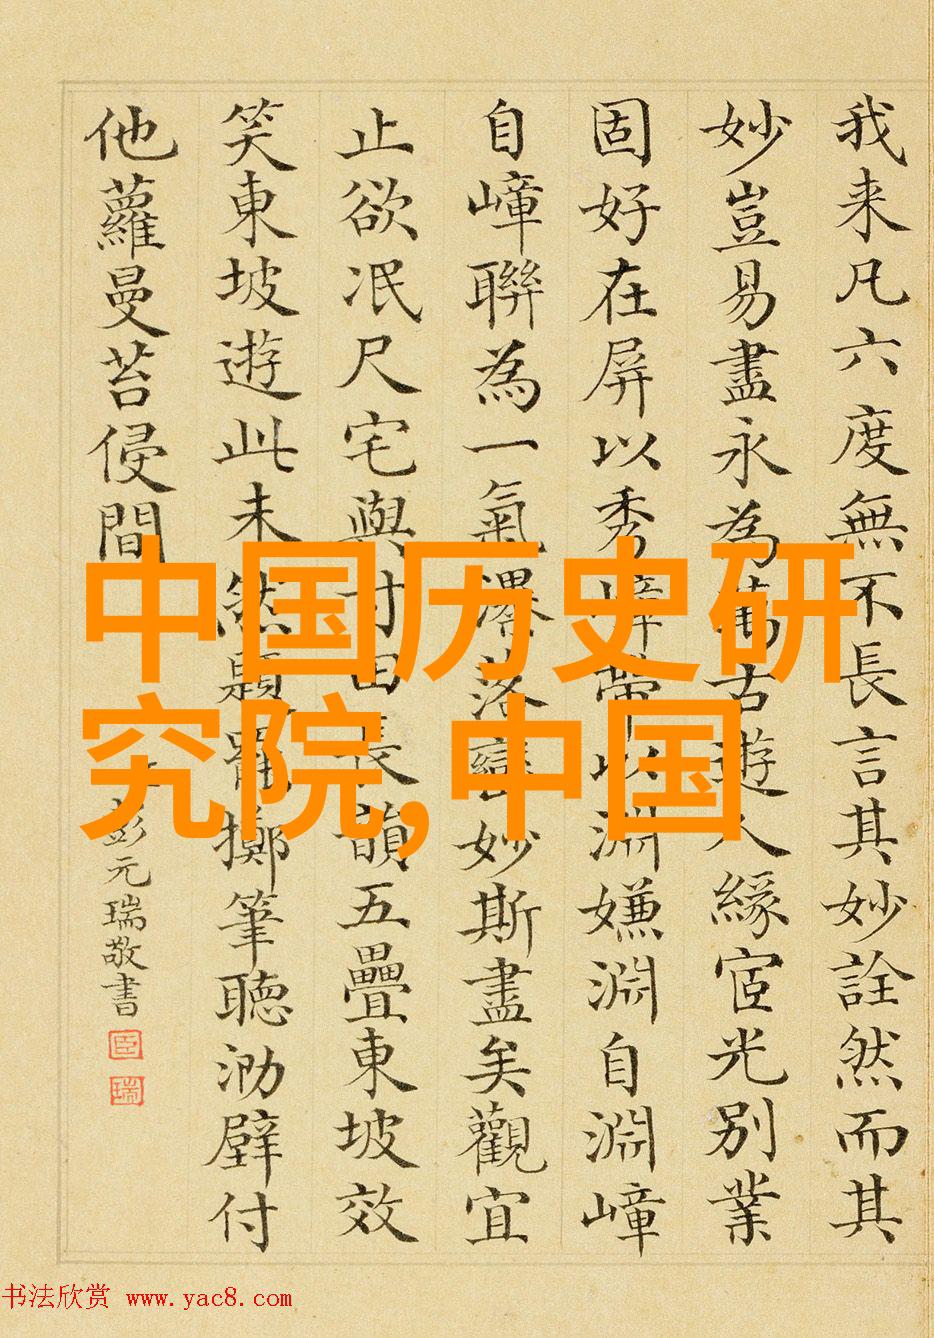 我来凡六度無不長言其妙詮然而其
妙豈易盡永為萬古遊人緣宧光別業
固好在屏以秀嶂帶以淵嫌淵自淵嶂
自嶂聯為一氣落妙斯盡矣觀宜
止欲泯尺宅與寸田長韻五疊東坡效
笑東坡遊此未然擲筆聽泐壁付
他蘿曼苔侵間
彭元瑞敬書
臣
瑞
中国历史研
究院,中国
书法欣赏 www.yac8.com